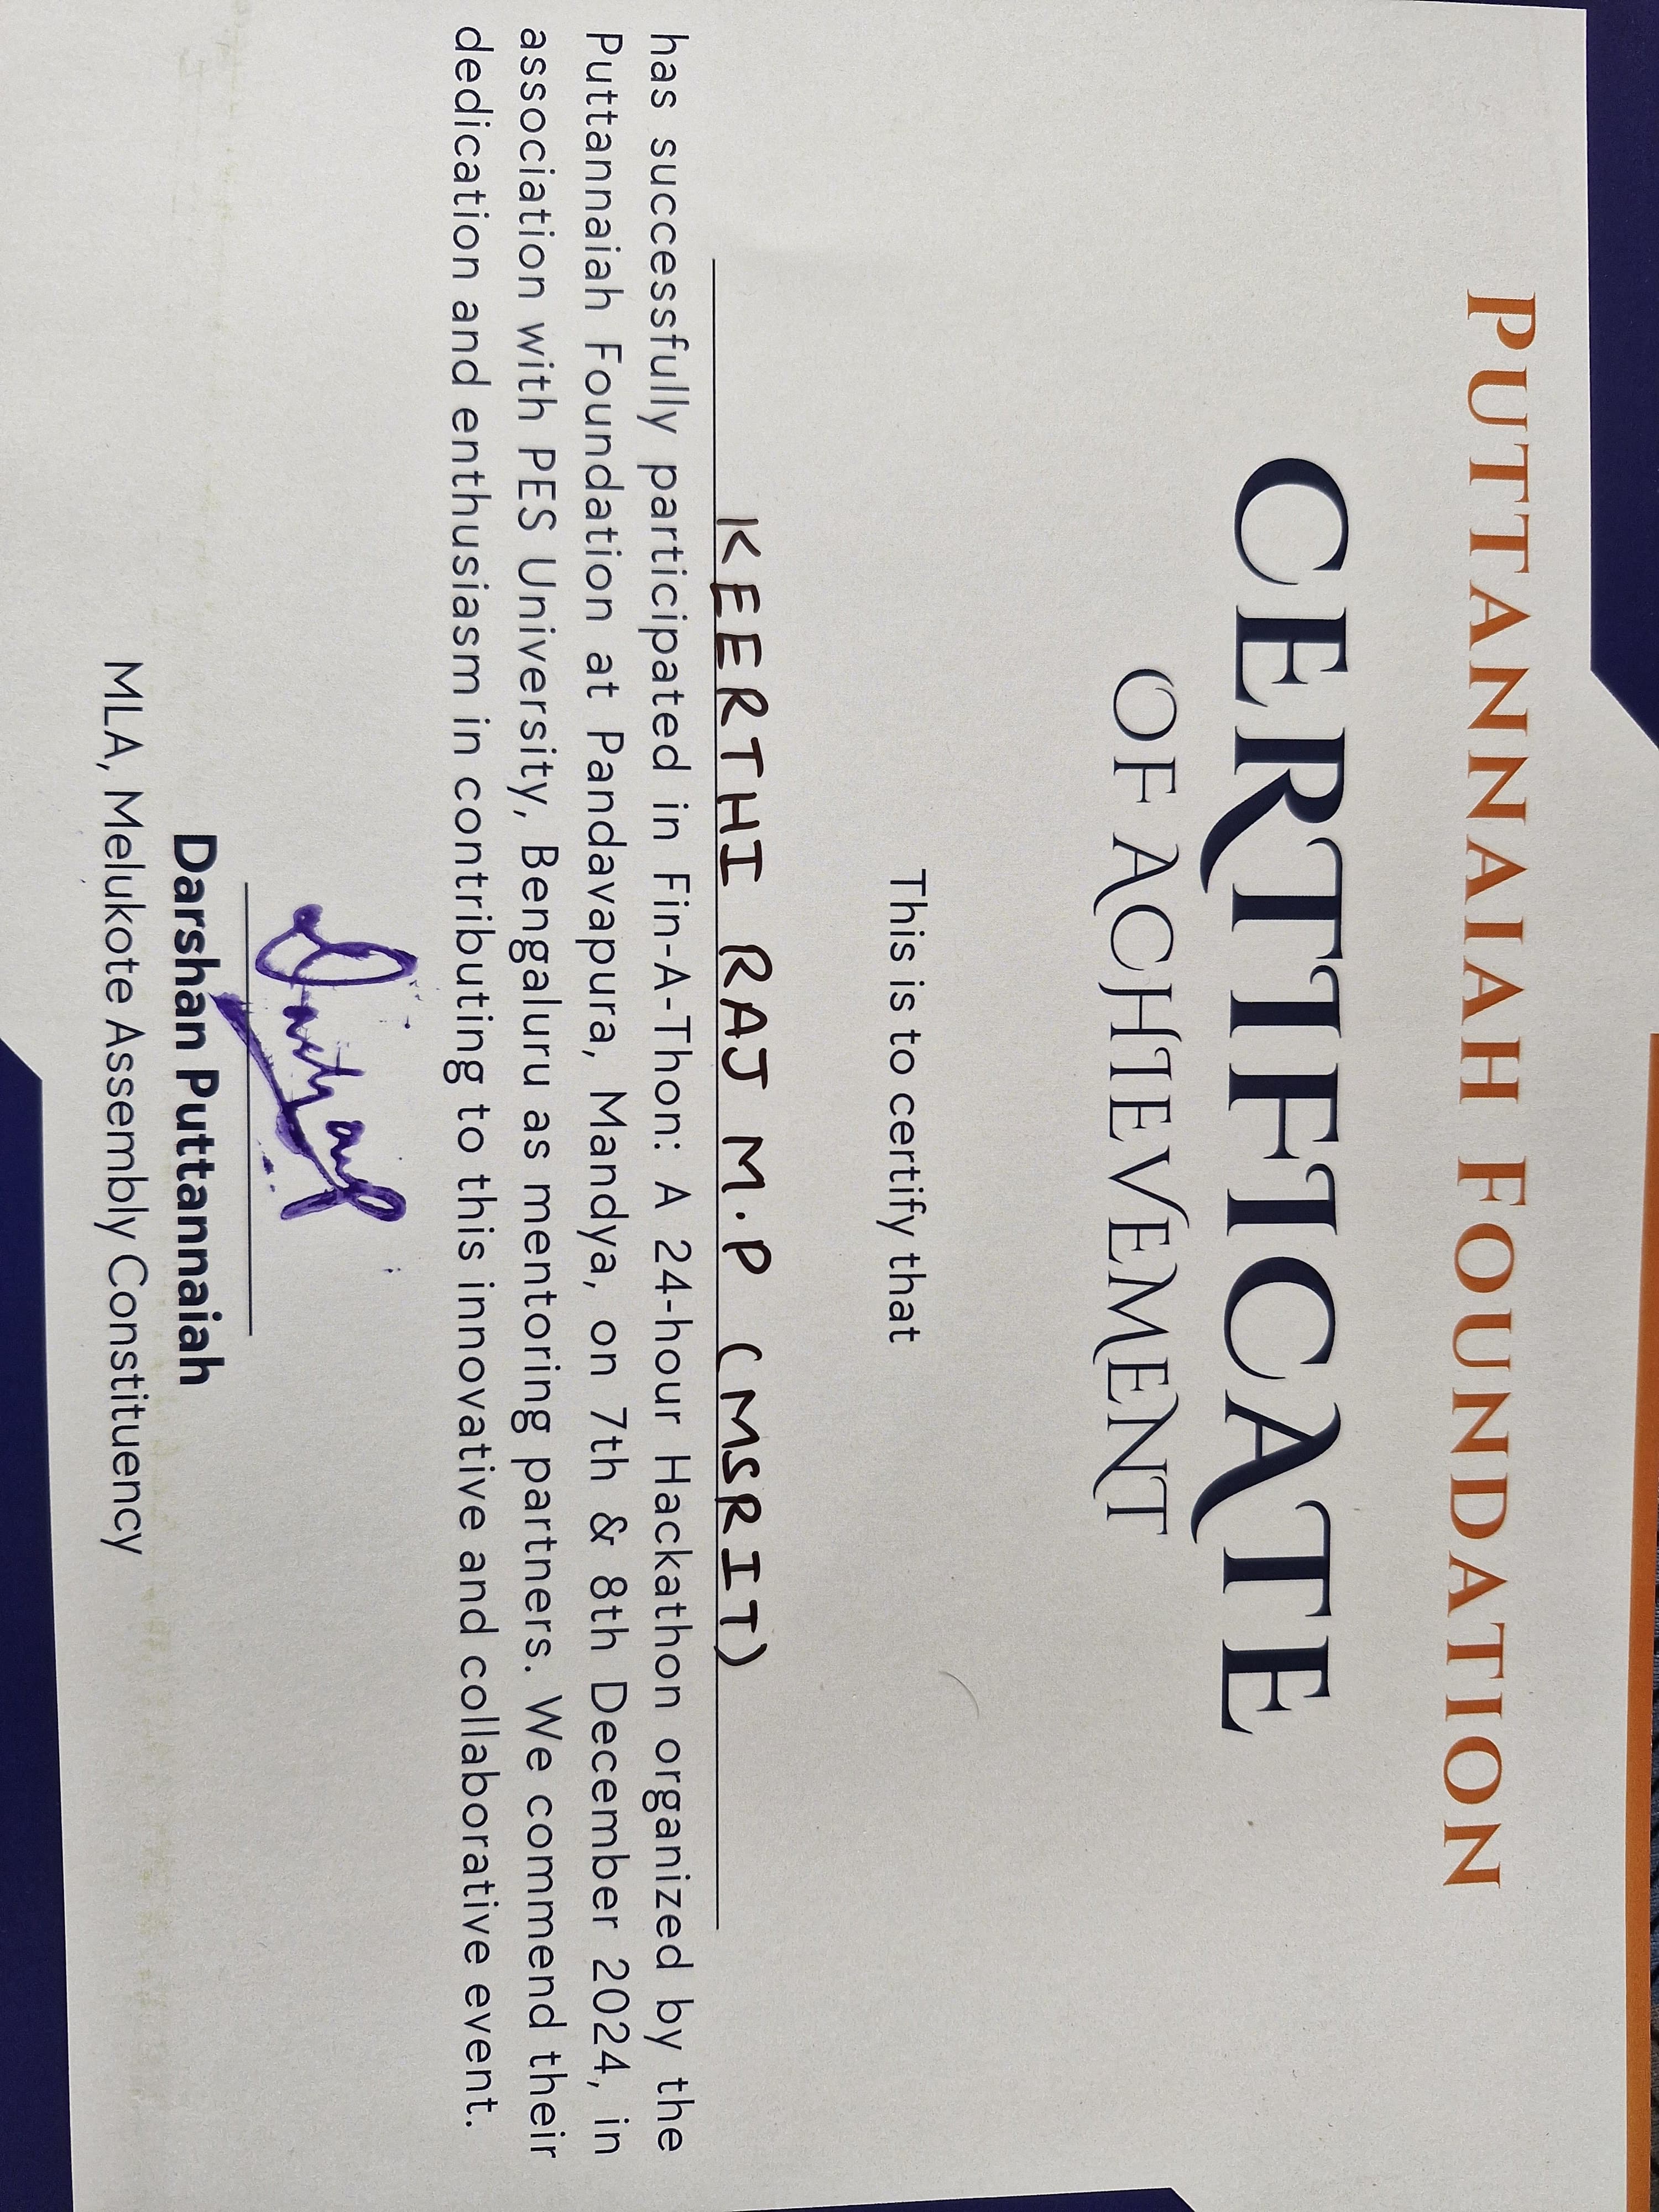 PUTTANNAIAH FOUNDATION
CERTIFICATE
OF ACHIEVEMENT
This is to certify that
KEERTHI RAJ M.P (MSRIT)
has successfully participated in Fin-A-Thon: A 24-hour Hackathon organized by the
Puttannaiah Foundation at Pandavapura, Mandya, on 7th & 8th December 2024, in
association with PES University, Bengaluru as mentoring partners. We commend their
dedication and enthusiasm in contributing to this innovative and collaborative event.
Darshan Puttannaiah
MLA, Melukote Assembly Constituency